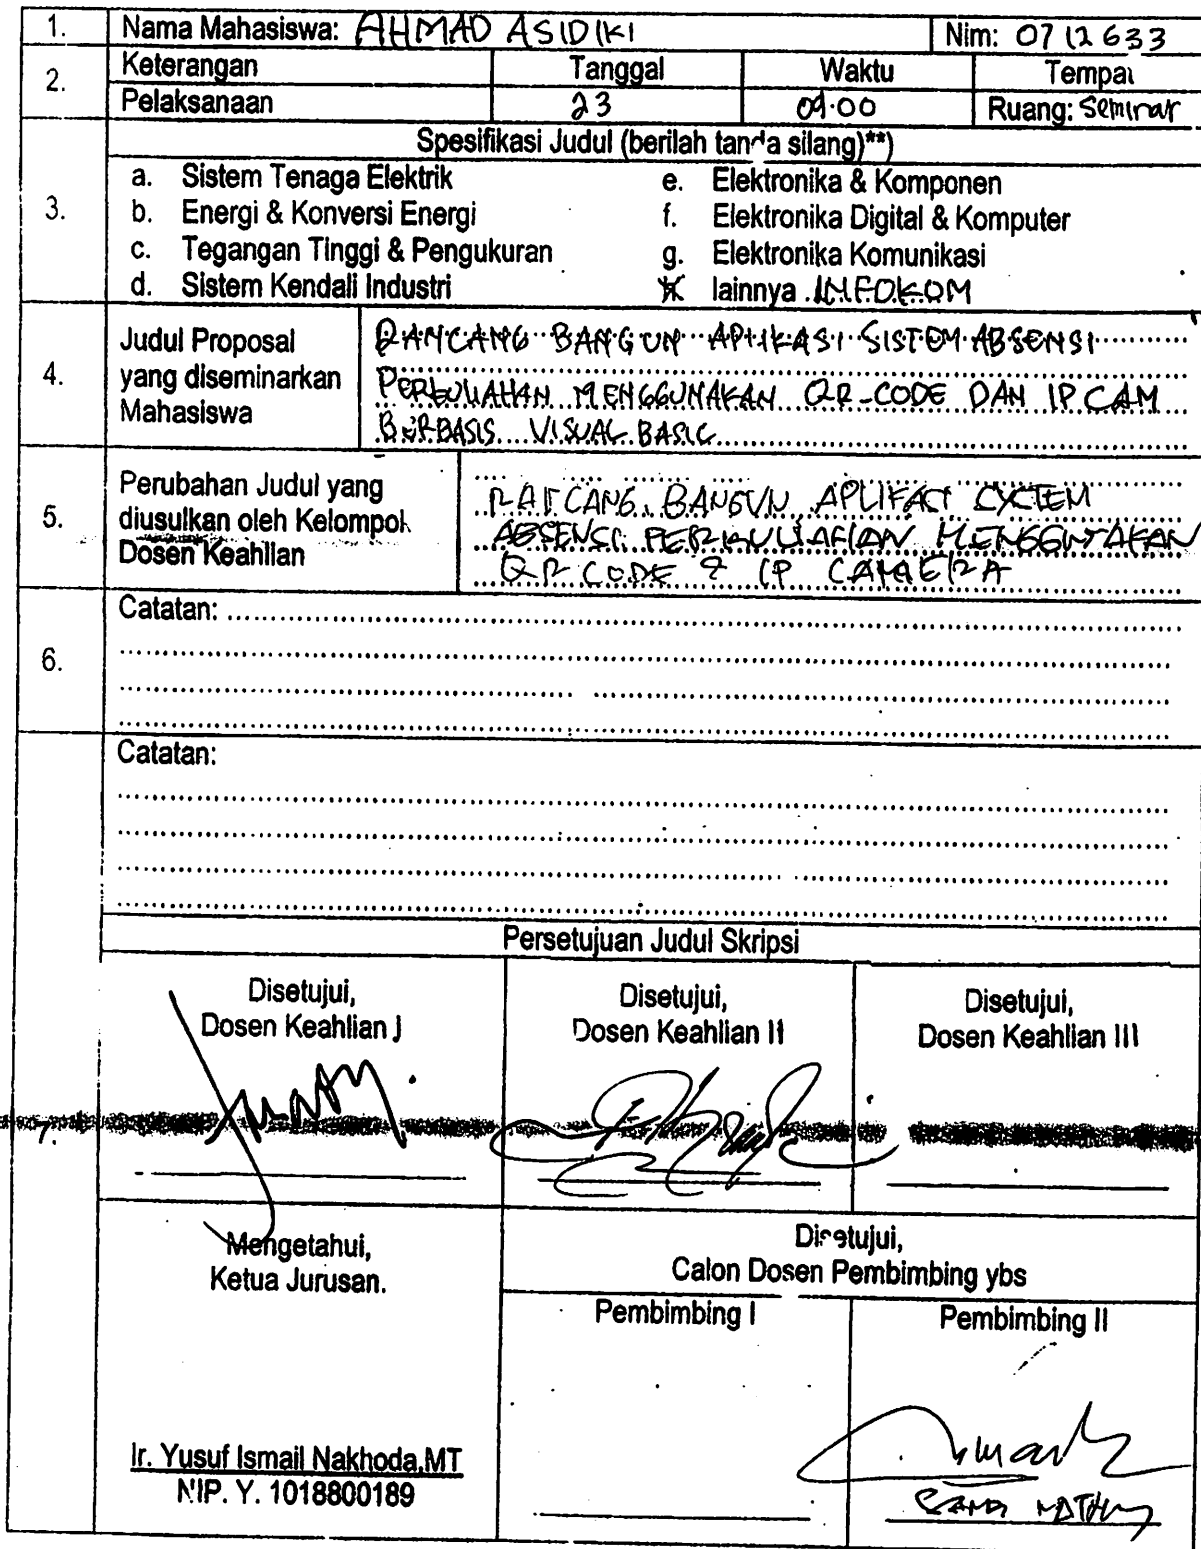 1. Nama Mahasiswa: AHMAD ASIDIKI Nim: 0712633
2. Keterangan Tanggal Waktu Tempat
Pelaksanaan 23 09.00 Ruang: Seminar
3. Spesifikasi Judul (berilah tanda silang)**)
a. Sistem Tenaga Elektrik e. Elektronika & Komponen
b. Energi & Konversi Energi f. Elektronika Digital & Komputer
c. Tegangan Tinggi & Pengukuran g. Elektronika Komunikasi
d. Sistem Kendali Industri lainnya INFOKOM
4. Judul Proposal yang diseminarkan Mahasiswa
RANCANG BANGUN APLIKASI SISTEM ABSENSI
PERKULIAHAN MENGGUNAKAN QR-CODE DAN IP CAM
BERBASIS VISUAL BASIC
5. Perubahan Judul yang diusulkan oleh Kelompok Dosen Keahlian
RANCANG BANGUN APLIKASI SYSTEM
ABSENSI PERKULIAHAN MENGGUNAKAN
QR CODE & IP CAMERA
6. Catatan:
7. Catatan:
Persetujuan Judul Skripsi
Disetujui,
Dosen Keahlian I
Disetujui,
Dosen Keahlian II
Disetujui,
Dosen Keahlian III
Mengetahui,
Ketua Jurusan.
Ir. Yusuf Ismail Nakhoda,MT
NIP. Y. 1018800189
Disetujui,
Calon Dosen Pembimbing ybs
Pembimbing I
Pembimbing II